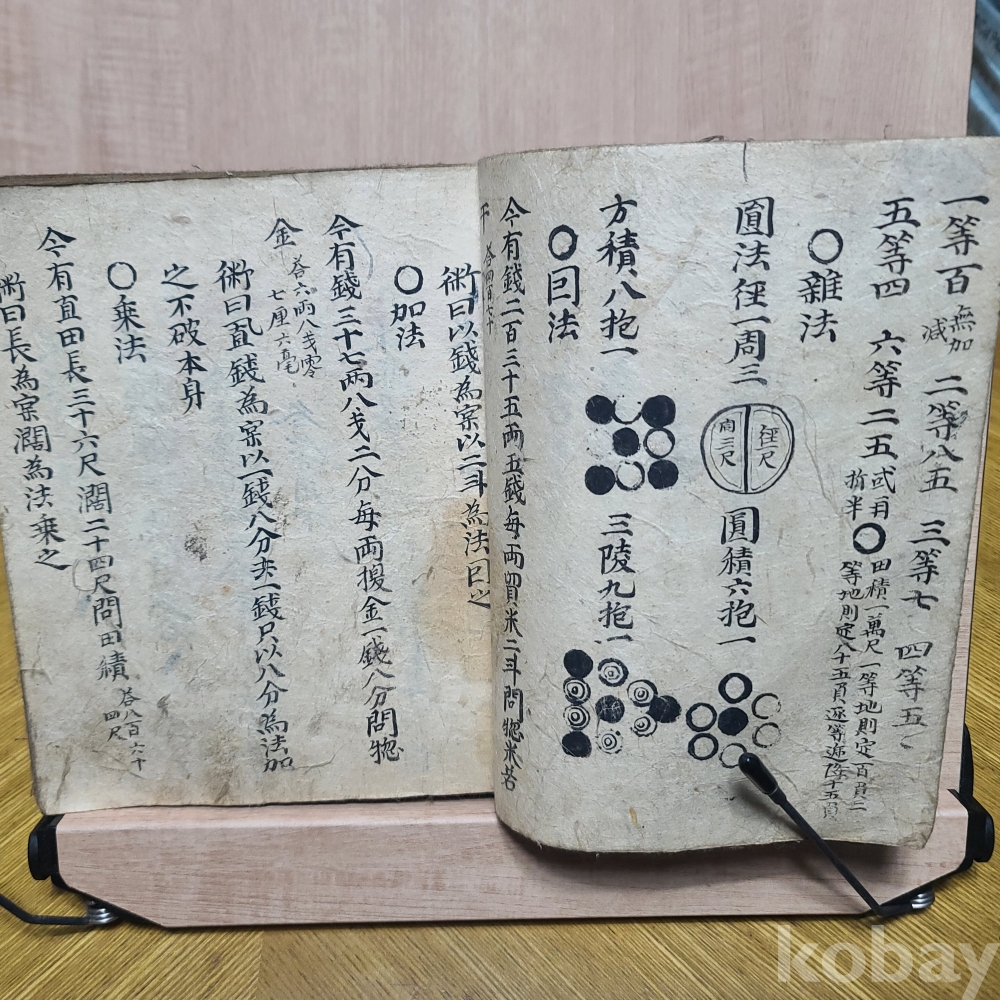 一等百 無加減 二等八五 三等七 四等五
五等四 六等二五 貳再折半 ○ 田積一萬尺一等地則定百員二等地則定八十五員逐等遞降十五員
○雜法
圎法徑一周三 徑一尺 周三尺 圓積六抱一
方積八抱一 三陵九抱一
○囙法
今有錢二百三十五兩五錢每兩買米二斗問惚米若
干 答四百七十
術曰以錢為宲以二斗為法囙之
○加法
今有錢三十七兩八戈二分每兩援金一錢八分問惚
金 答六兩八戈零七厘六毫
術曰直錢為宲以一錢八分去一錢只以八分為法加
之不破本身
○乘法
今有直田長三十六尺濶二十四尺問田績 答八百六十四尺
術曰長為宲濶為法乘之
kobay